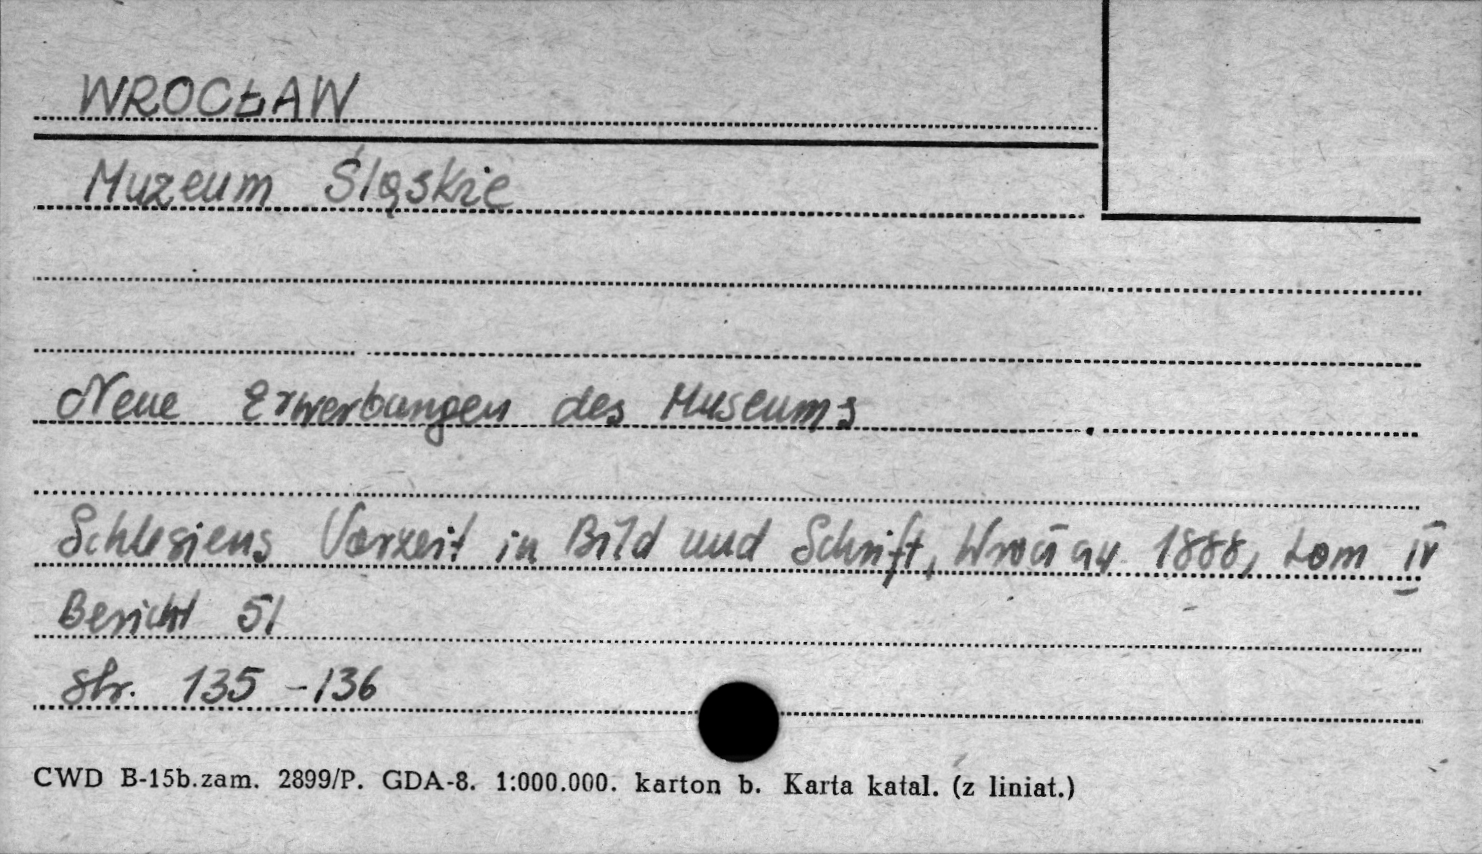 WROCŁAW
Muzeum Śląskie
Neue Erwerbungen des Museums
Schlesiens Vorzeit in Bild und Schrift, Wrocław 1888, tom IV
Bericht 51
str. 135-136
CWD B-15b.zam. 2899/P. GDA-8. 1:000.000. karton b. Karta katal. (z liniat.)